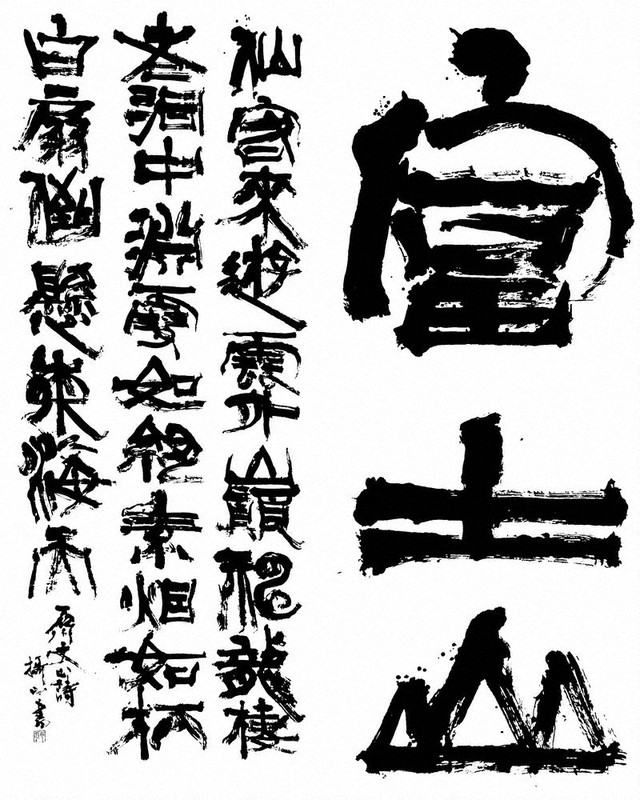 富士山
仙客來遊雲外巓神龍棲
老洞中淵雪如紈素烟如柄
白扇倒懸東海天
丈山詩
書